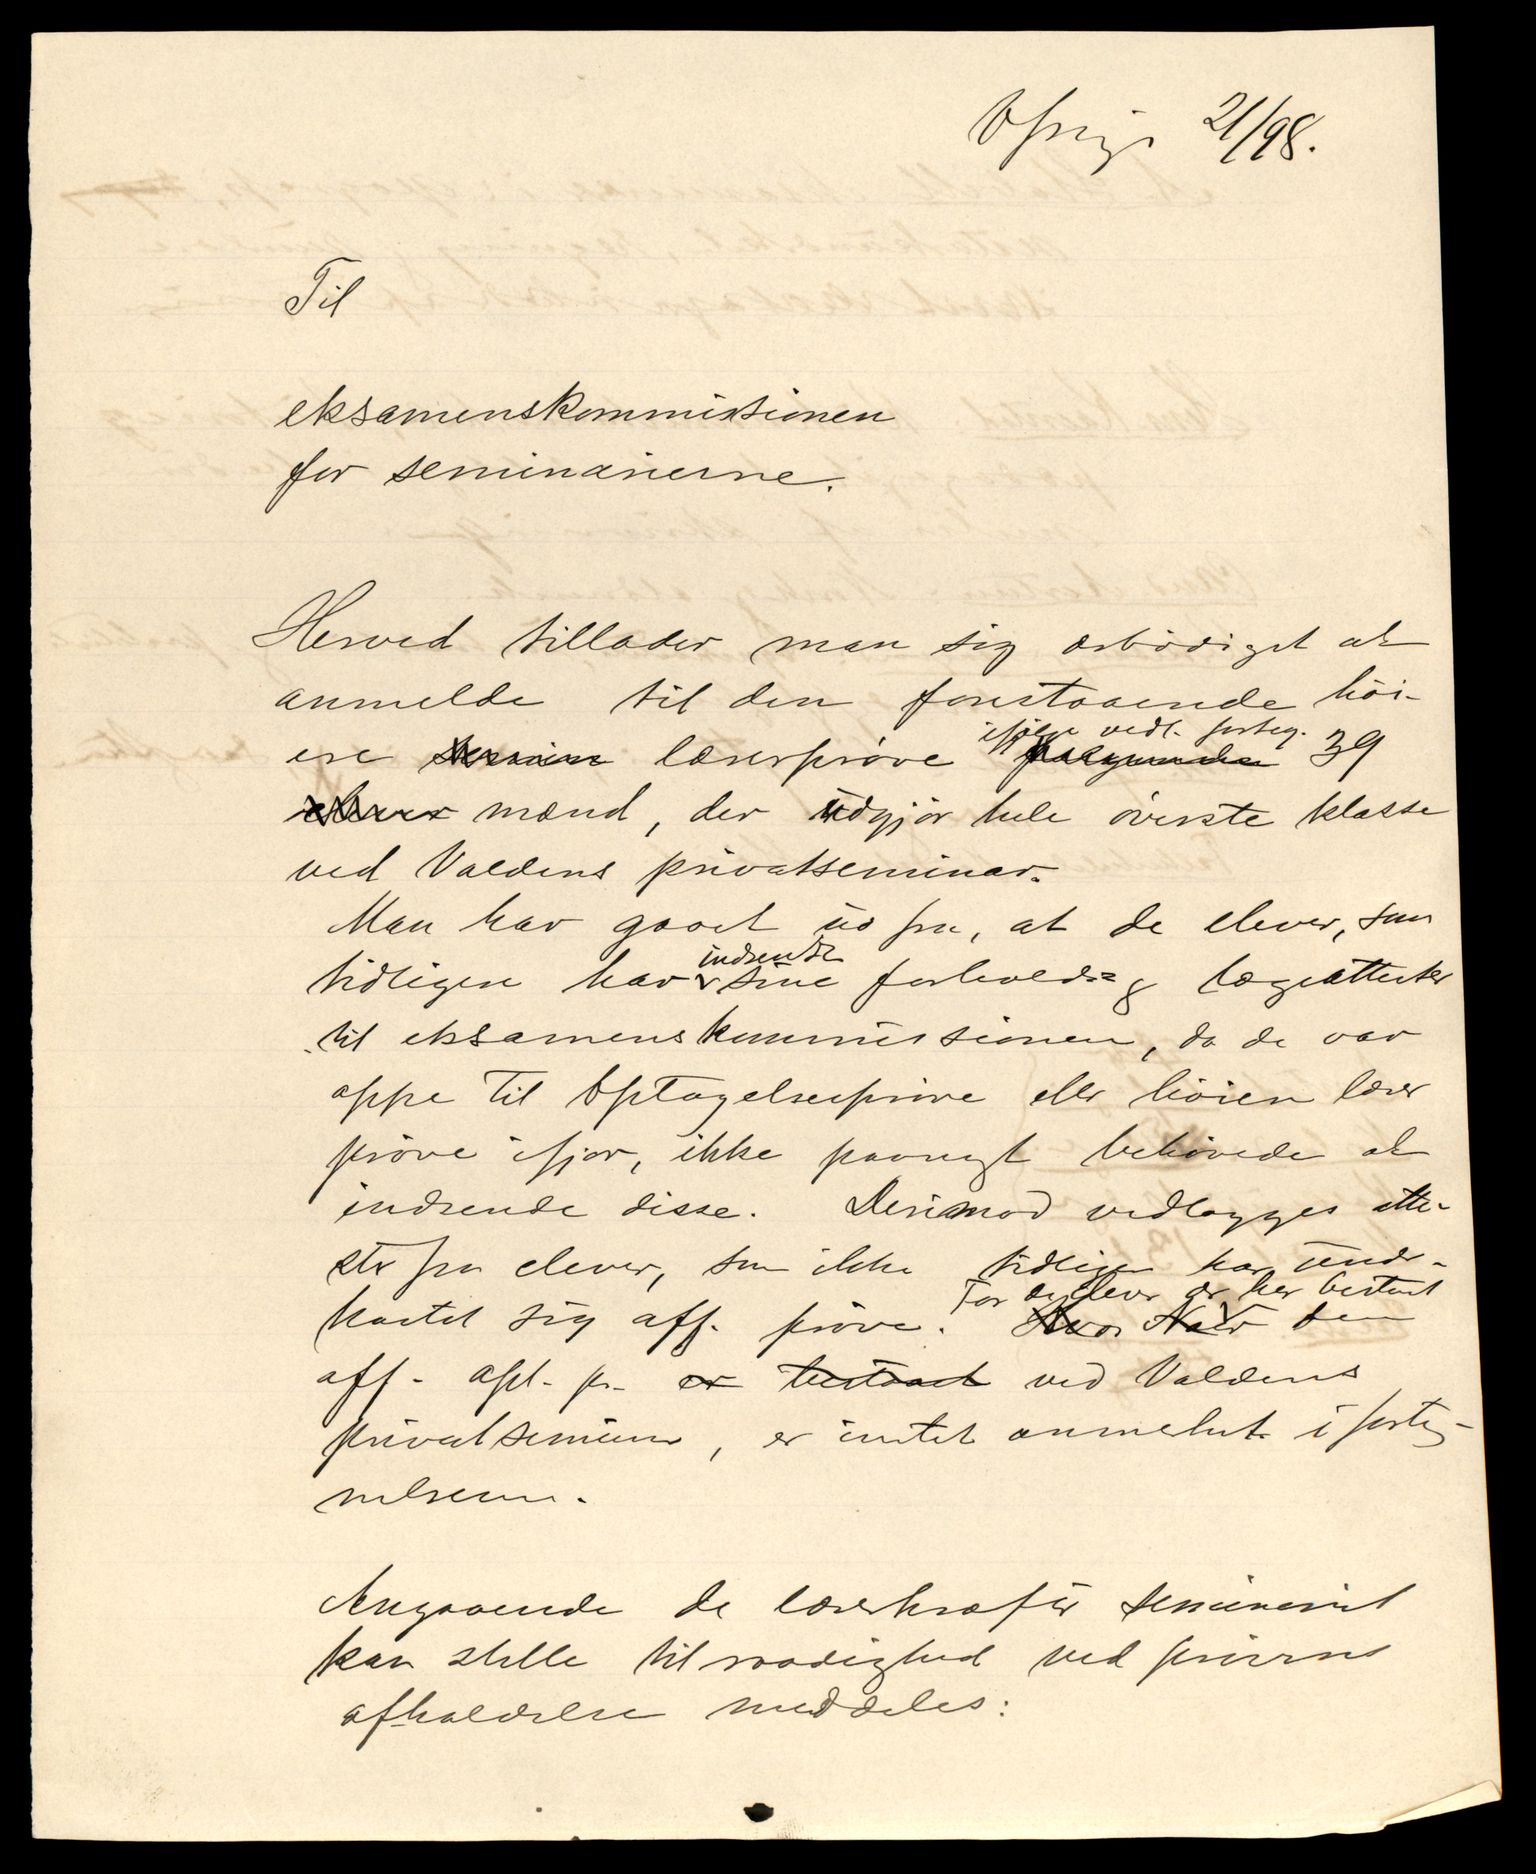 21/98.
Til
eksamenskommissionen
for seminarierne.
Herved tillader man sig ærbødigst at
anmelde til den forestaaende høi-
ere lærerprøve ifølge vedl. forteg. 39
mænd, der udgjør hele øverste klasse
ved Valdens privatseminar.
Man har gaaet ud fra, at de elever, som
tidligere har indsendt sine forholds= og lægeattester
til eksamenskommissionen, da de var
oppe til optagelsesprøve eller høiere lærer
prøve ifjor, ikke paanyt behøvede at
indsende disse. Derimod vedlægges atte-
ster fra elever, som ikke tidligere har under-
kastet sig off. prøve. For de elever der har bestaaet den
off. opt. pr. er bestaaet ved Valdens
privatseminar, er intet anmerket i forteg-
nelsen.
Angaaende de lærerkræfter seminariet
kan stille til raadighed ved prøvens
afholdelse meddeles: